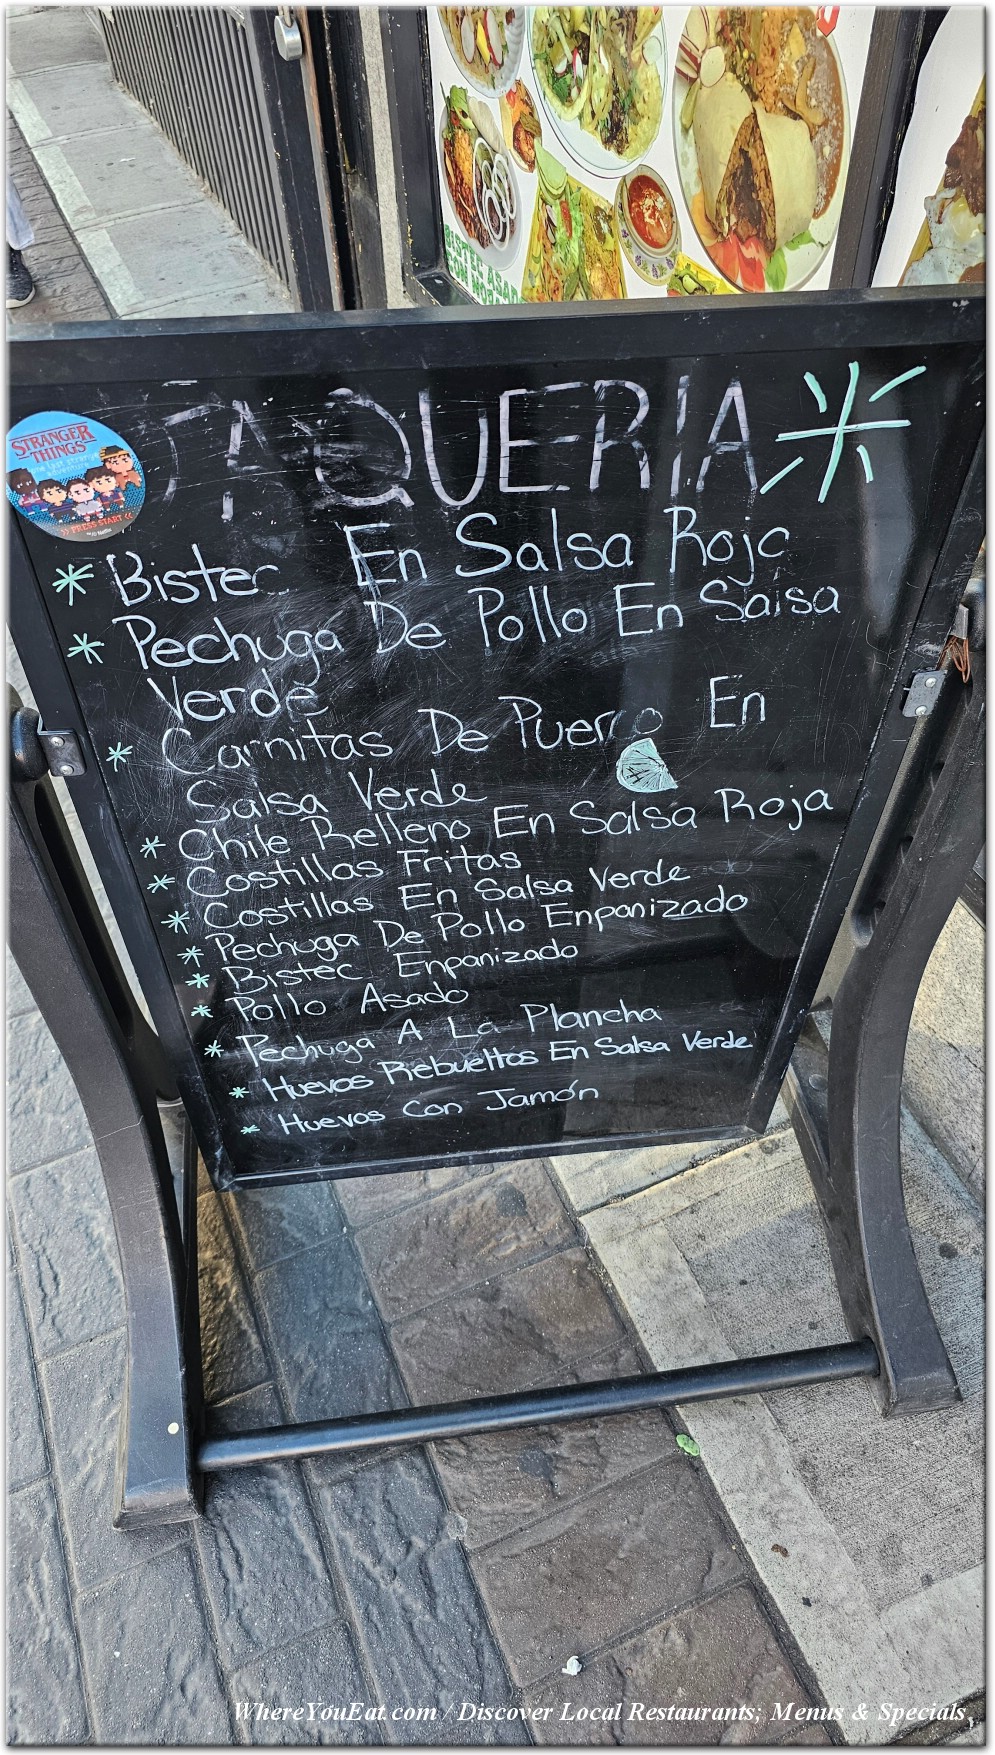 BISTEC ASADO
CON NOP
TAQUERIA
STRANGER
THINGS
one last strange
adventure
>> PRESS START <<
Bistec En Salsa Rojo
Pechuga De Pollo En Salsa
Verde
Carnitas De Puerco En
Salsa Verde
Chile Relleno En Salsa Roja
Costillas Fritas
Costillas En Salsa Verde
Pechuga De Pollo Enpanizado
Bistec Enpanizado
Pollo Asado
Pechuga A La Plancha
Huevos Rebueltos En Salsa Verde
Huevos Con Jamón
WhereYouEat.com / Discover Local Restaurants; Menus & Specials,